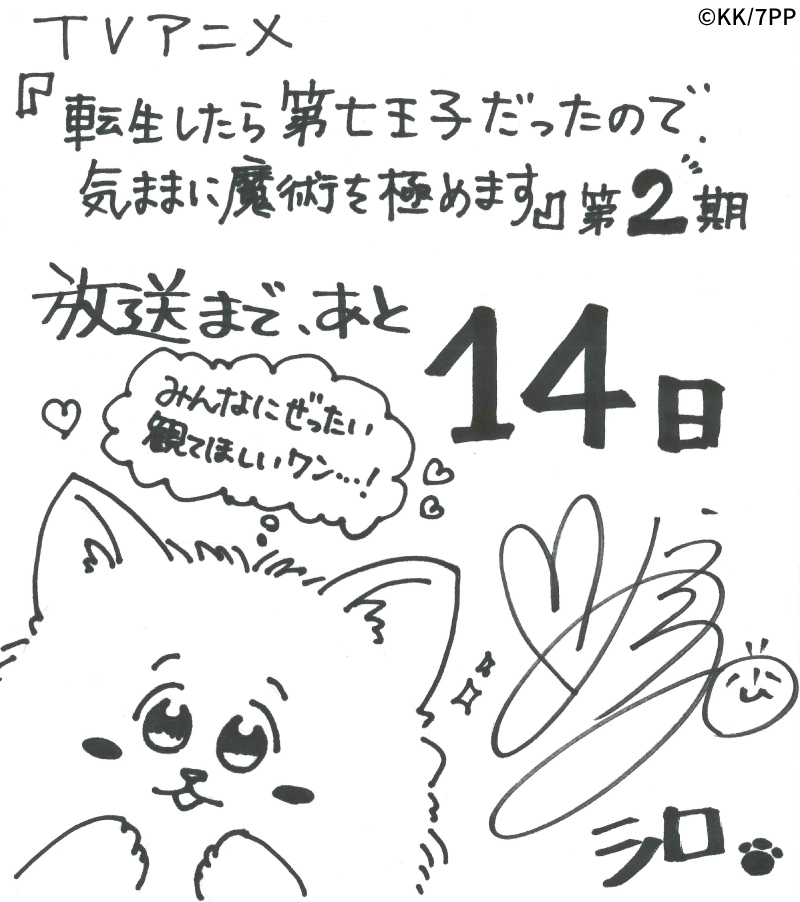 ©KK/7PP
TVアニメ
『転生したら第七王子だったので、
気ままに魔術を極めます』第2期
放送まで、あと
14日
みんなにぜったい
観てほしいワン…!
シロ